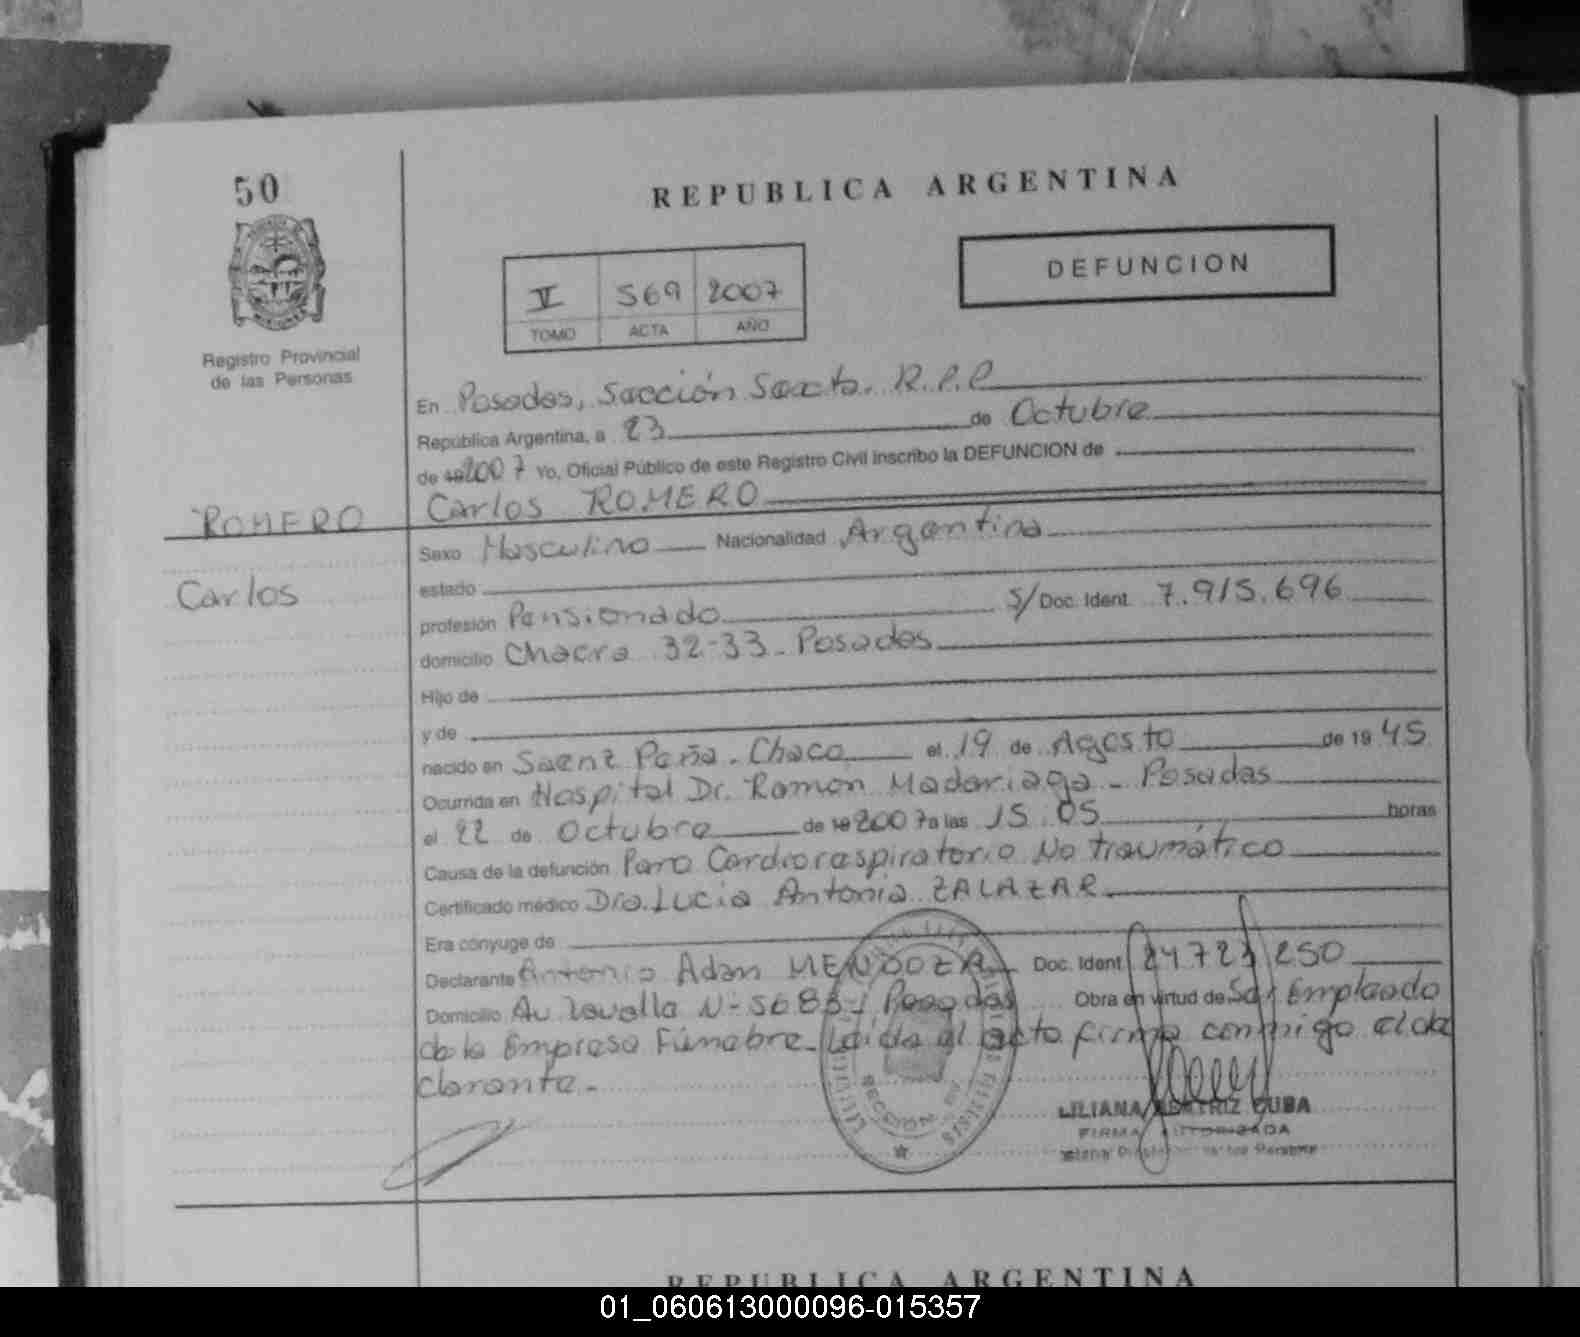 50
REPUBLICA ARGENTINA
DEFUNCION
V 569 2007
TOMO ACTA AÑO
Registro Provincial
de las Personas
En Posadas, Sección Sexta. R.P.P
República Argentina, a 23 de Octubre
de 19 2007 Yo, Oficial Público de este Registro Civil inscribo la DEFUNCION de
Carlos ROMERO
ROMERO
Carlos
Sexo Masculino Nacionalidad Argentina
estado
profesión Pensionado S/ Doc. Ident. 7.915.696
domicilio Chacra 32-33 - Posadas
Hijo de
y de
nacido en Saenz Peña - Chaco el 19 de Agosto de 19 45
Ocurrida en Hospital Dr. Ramón Madariaga - Posadas
el 22 de Octubre de 19 2007 a las 15.05 horas
Causa de la defunción Paro Cardiorespiratorio No traumático
Certificado médico Dra. Lucia Antonia ZALAZAR
Era cónyuge de
Declarante Antonio Adan MENDOZA Doc. Ident. 24.723.250
Domicilio Av Lavalle N- 5683 - Posadas Obra en virtud de Ser Empleado
de la Empresa Fúnebre - Leída el acta firma conmigo el de
clarante -
SECCION
LILIANA BEATRIZ CUBA
FIRMA AUTORIZADA
REPUBLICA ARGENTINA
01_060613000096-015357